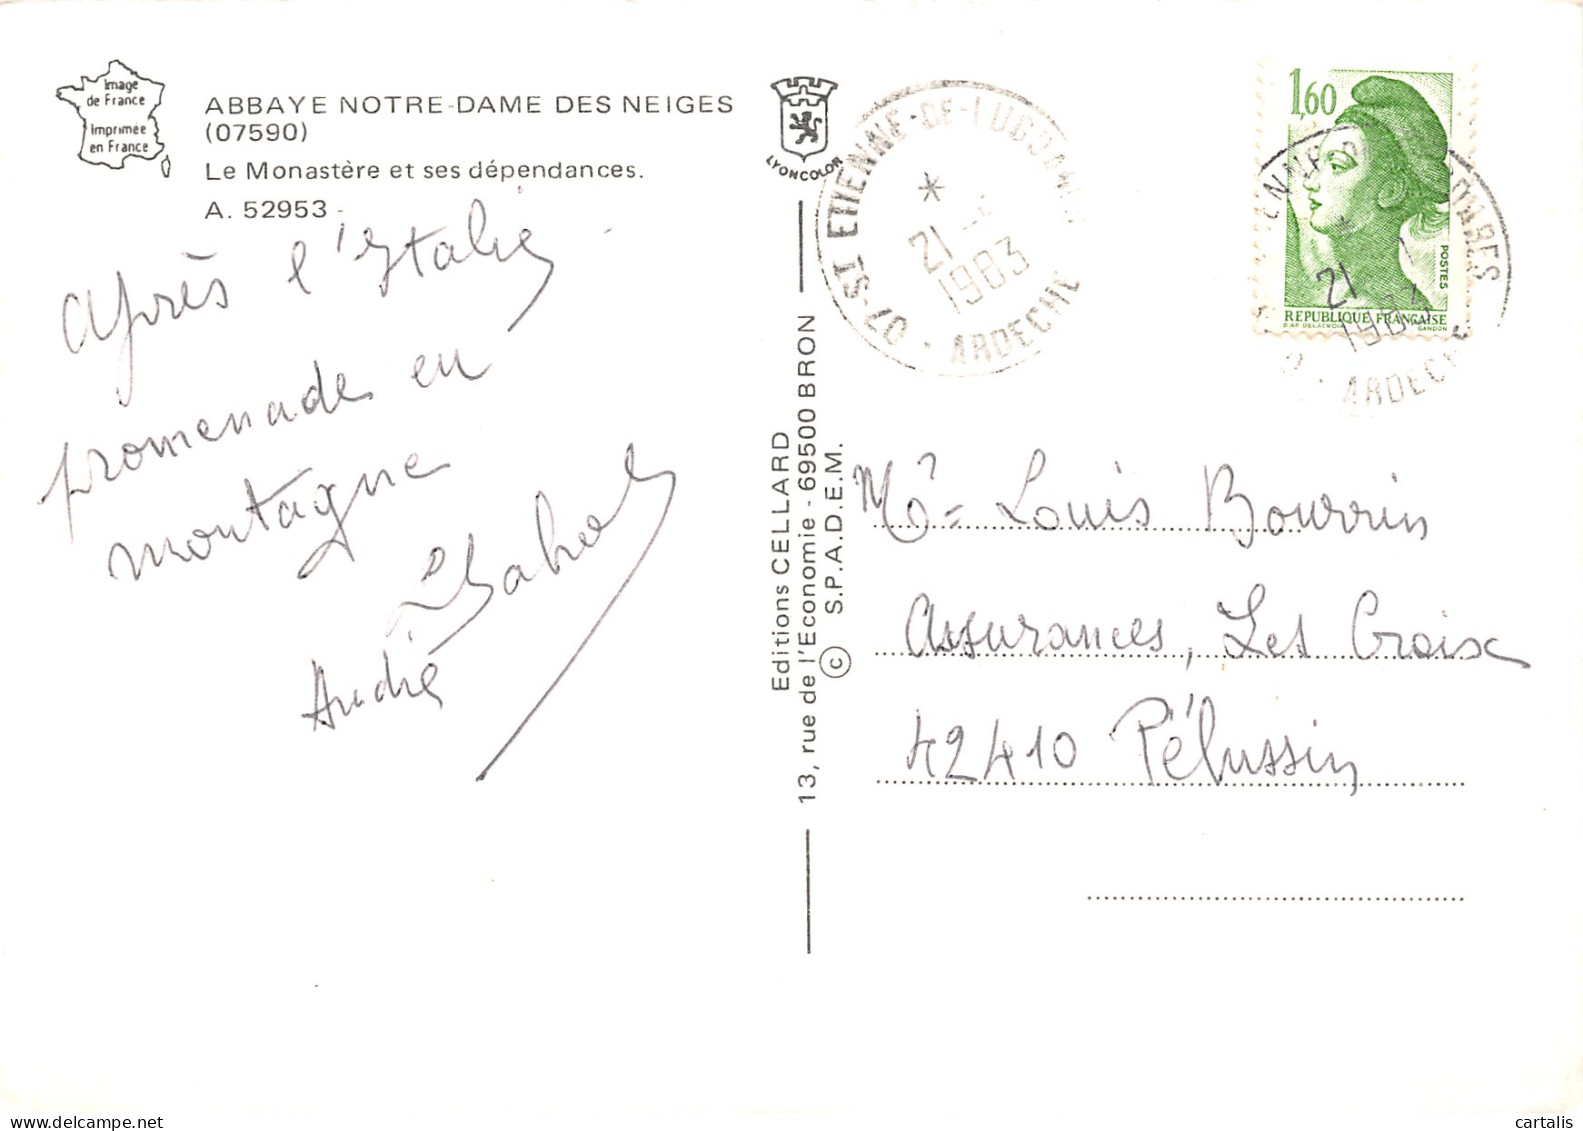 Image
de France
Imprimée
en France
ABBAYE NOTRE-DAME DES NEIGES
(07590)
Le Monastère et ses dépendances.
A. 52953 -
Après l'Italie
promenade en
montagne
André
LYONCOLOR
Editions CELLARD
13, rue de l'Economie - 69500 BRON
© S.P.A.D.E.M.
07-ST ETIENNE-DE-LUGDARES
*
21
1983
ARDECHE
1,60
POSTES
REPUBLIQUE FRANÇAISE
D'AP. DELACROIX GANDON
*
21
1983
ARDECHE
Mr Louis Bourrin
Assurances, Les Croix
42410 Pélussin
cartalis